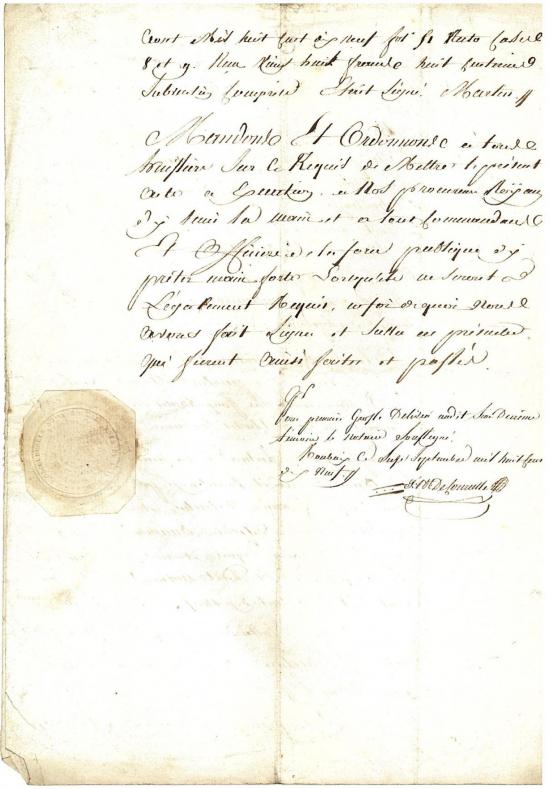 aout Mil huit Cent dix neuf fol 51 Recto Cases
8 et 9. Recu Vingt huit francs huit centimes
Subvention Comprise Etait Signé Martin
Mandons Et Ordonnons à tous
huissiers Sur Ce Requis de Mettre le présent
acte a Execution, a Nos procureurs Royaux
d'y tenir la main et a tout Commandans
Et Officiers de la force publique d'y
prêter main forte Lorsqu'ils en Seront
Légalement Requis, en foi de quoi Nous
avons fait Signer et Sceller ces présentes
qui furent ainsi faites et passées.
Pour première Grosse Délivrée audit Sieur
le Notaire Soussigné
Roubaix Ce Sept Septembre mil huit Cent
dix Neuf